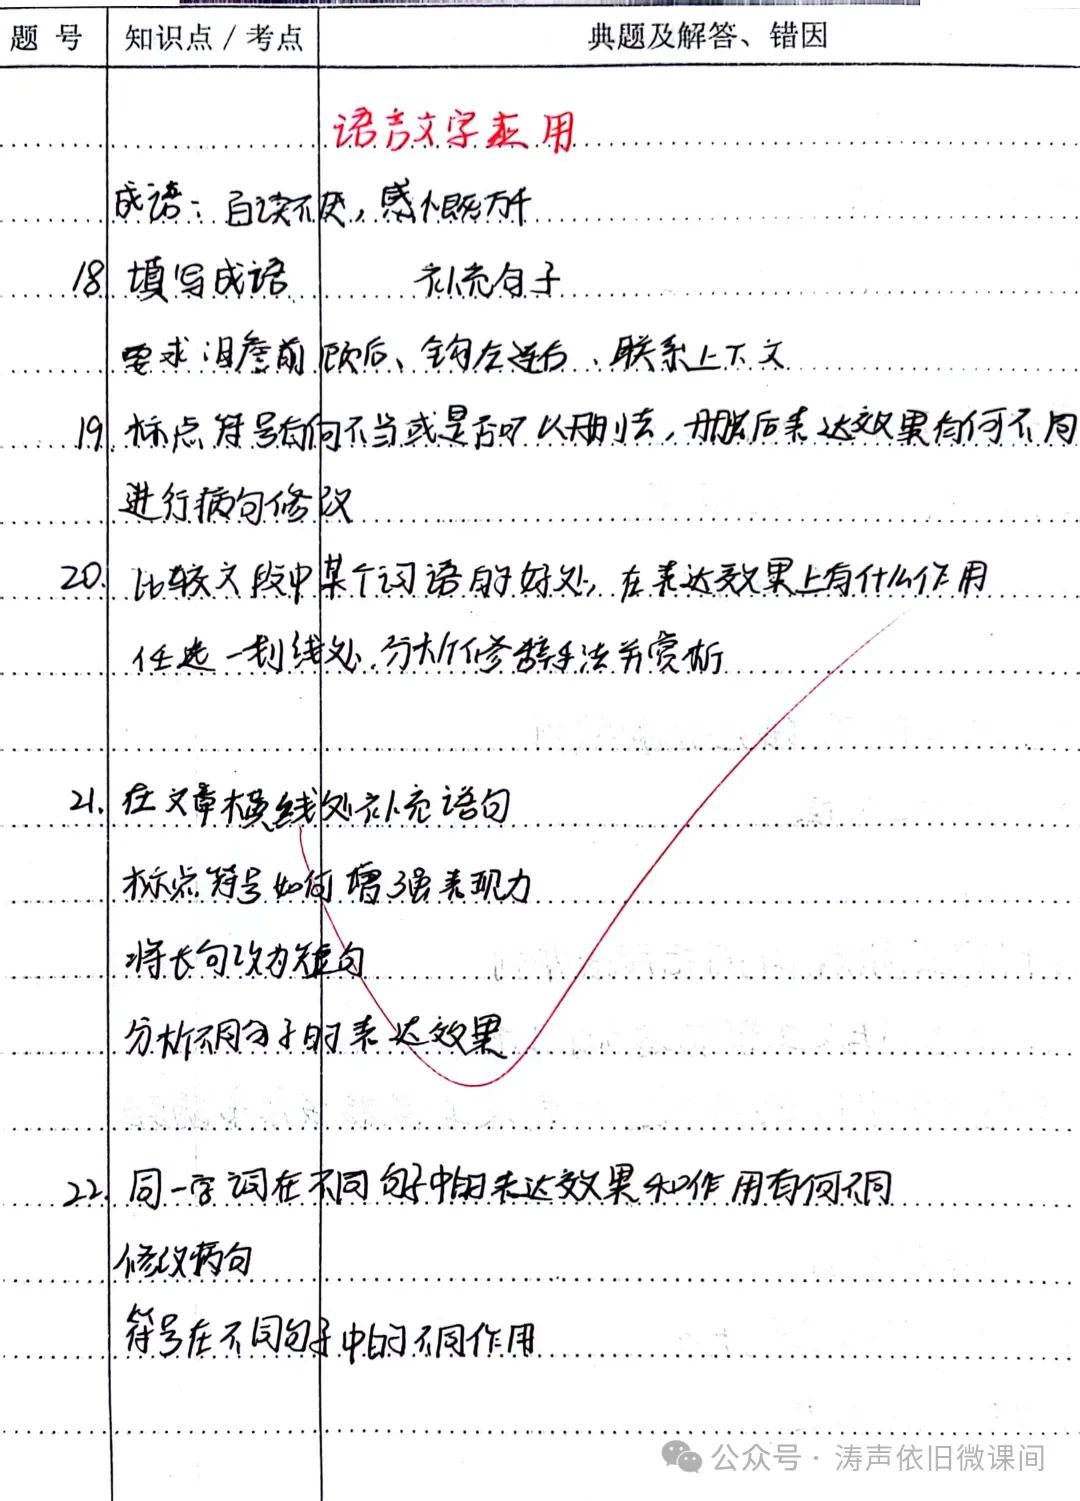 题 号 知识点 / 考点 典题及解答、错因
语言文字应用
成语：百读不厌，感慨万千
18 填写成语 补充句子
要求：瞻前顾后、钩左连右、联系上下文
19. 标点符号有何不当或是否可以删去，删除后表达效果有何不同
进行病句修改
20. 比较文段中某个词语的好处，在表达效果上有什么作用
任选一划线处，分析修辞手法并赏析
21. 在文章横线处补充语句
标点符号如何增强表现力
将长句改为短句
分析不同句子的表达效果
22. 同一字词在不同句子中的表达效果和作用有何不同
修改病句
符号在不同句子中的不同作用
公众号 · 涛声依旧微课间